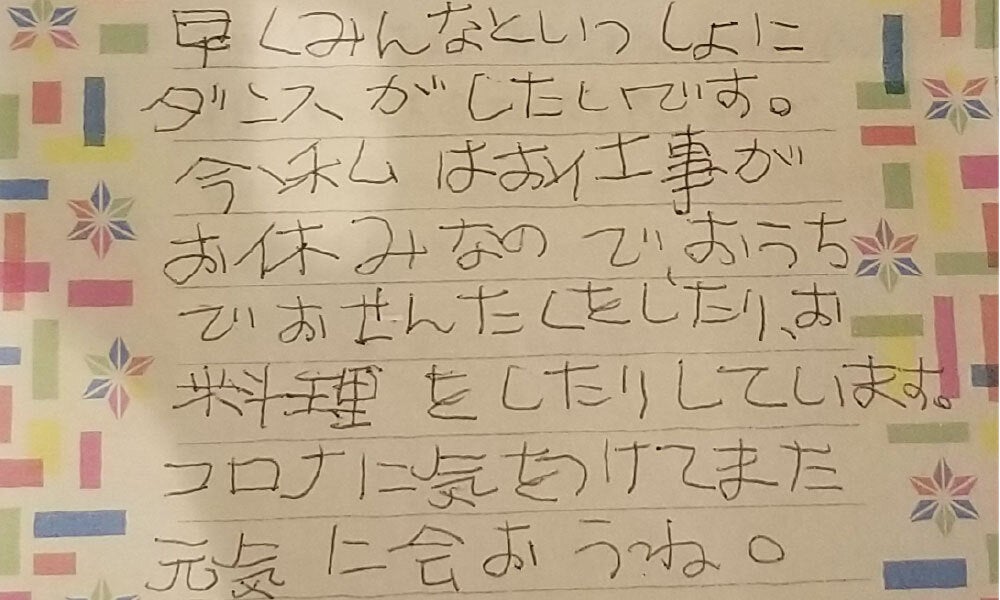 早くみんなといっしょに
ダンスがしたいです。
今、私はお仕事が
お休みなので、おうち
でおせんたくをしたり、お
料理をしたりしています。
コロナに気をつけてまた
元気に会おうね。